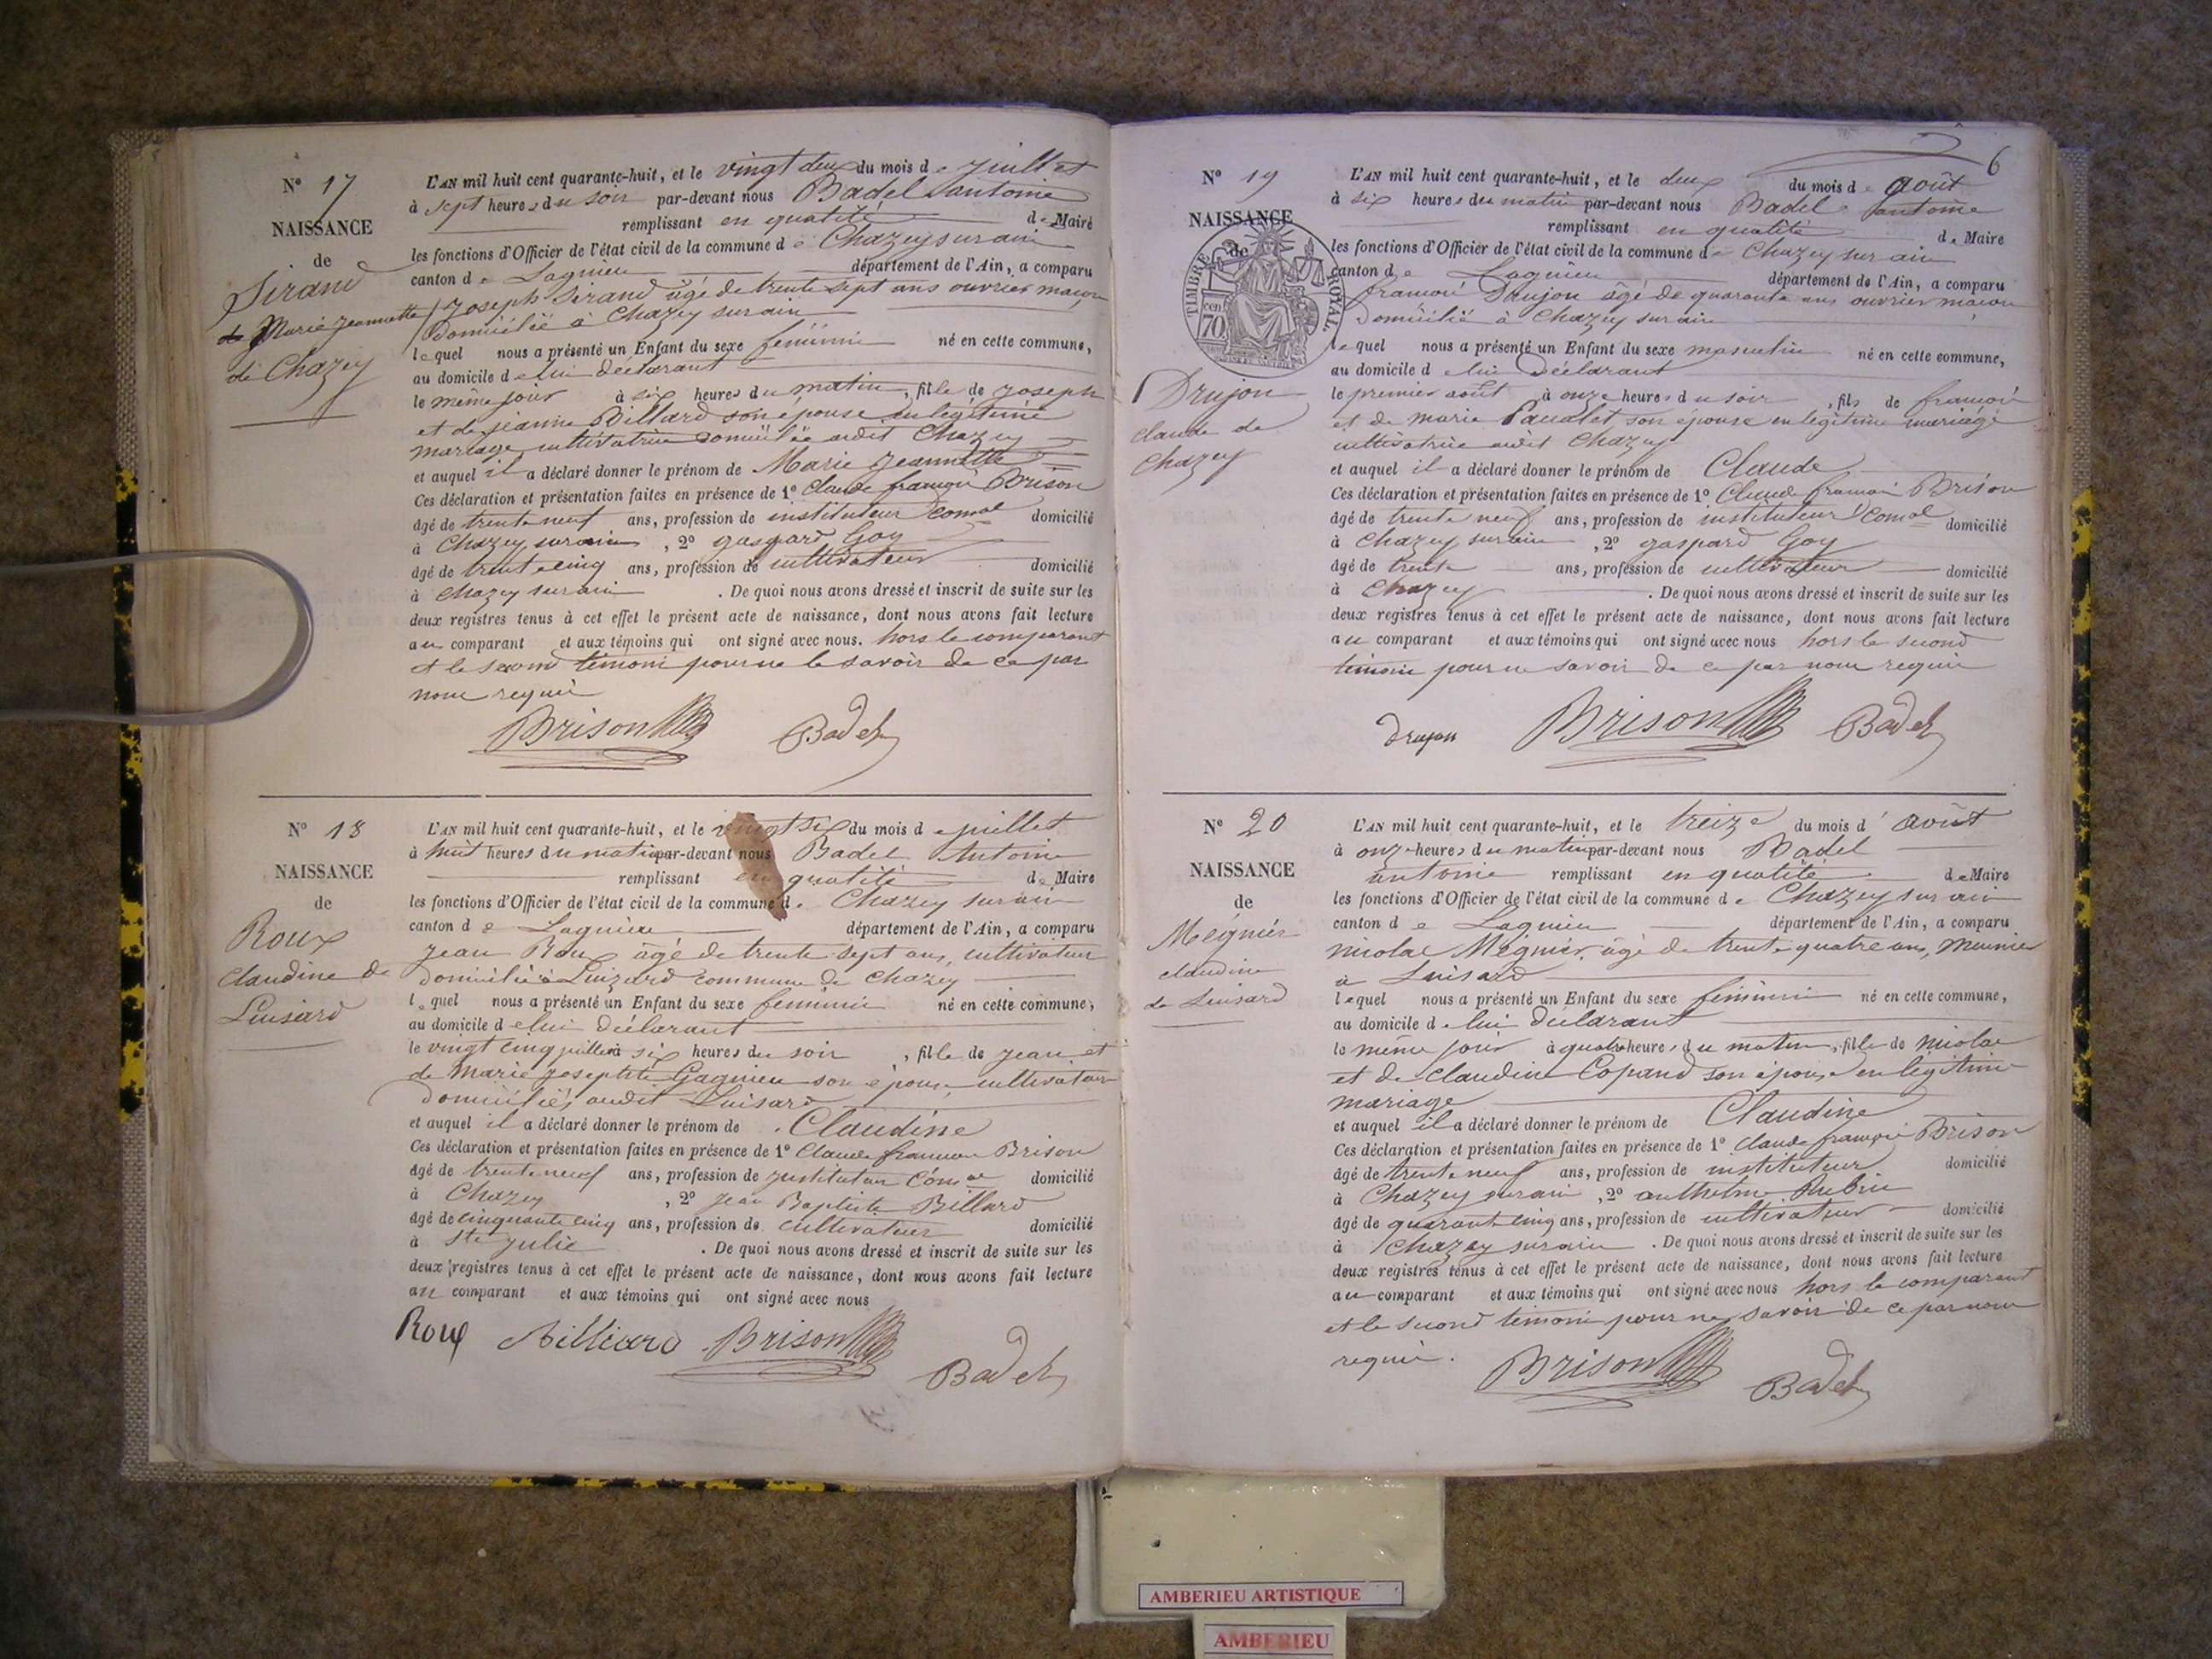 N° 17
NAISSANCE
de
Sirand
Marie Jeannette
de Chazey
L'AN mil huit cent quarante-huit, et le vingt deux du mois de Juillet
à sept heures du soir par-devant nous Badel antoine
remplissant en qualité de Maire
les fonctions d'Officier de l'état civil de la commune de Chazey sur ain
canton de Lagnieu département de l'Ain, a comparu
Joseph Sirand âgé de trente sept ans ouvrier maçon
domicilié à Chazey sur ain
lequel nous a présenté un Enfant du sexe féminin né en cette commune,
au domicile de lui déclarant
le même jour à six heures du matin, fille de joseph
et de jeanne Billard son épouse en légitime
mariage cultivatrice domiciliée audit Chazey
et auquel il a déclaré donner le prénom de Marie Jeannette
Ces déclaration et présentation faites en présence de 1° Claude françois Brison
âgé de trente neuf ans, profession de instituteur comal domicilié
à Chazey sur ain, 2° gaspard Goy
âgé de trente cinq ans, profession de cultivateur domicilié
à chazey sur ain. De quoi nous avons dressé et inscrit de suite sur les
deux registres tenus à cet effet le présent acte de naissance, dont nous avons fait lecture
au comparant et aux témoins qui ont signé avec nous. hors le comparant
et le second témoin pour ne le savoir de ce par
nous requis
Brison Badel
N° 18
NAISSANCE
de
Roux
Claudine de
Luisard
L'AN mil huit cent quarante-huit, et le vingt six du mois de juillet
à huit heures du matin par-devant nous Badel Antoine
remplissant en qualité de Maire
les fonctions d'Officier de l'état civil de la commune de Chazey sur ain
canton de Lagnieu département de l'Ain, a comparu
Jean Roux âgé de trente sept ans, cultivateur
domicilié à Luizard commune de Chazey
lequel nous a présenté un Enfant du sexe féminin né en cette commune,
au domicile de lui déclarant
le vingt cinq juillet à six heures du soir, fille de jean et
de Marie josephte Gagnieu son épouse cultivateurs
domiciliés audit Luisard
et auquel il a déclaré donner le prénom de Claudine
Ces déclaration et présentation faites en présence de 1° Claude françois Brison
âgé de trente neuf ans, profession de instituteur comal domicilié
à Chazey, 2° Jean Baptiste Billard
âgé de cinquante cinq ans, profession de cultivateur domicilié
à Ste julie. De quoi nous avons dressé et inscrit de suite sur les
deux registres tenus à cet effet le présent acte de naissance, dont nous avons fait lecture
au comparant et aux témoins qui ont signé avec nous
Roux Billiard Brison Badel
6
N° 19
NAISSANCE
de
TIMBRE ROYAL
70 cen
Drujon
claude de
chazey
L'AN mil huit cent quarante-huit, et le deux du mois de Août
à six heures du matin par-devant nous Badel antoine
remplissant en qualité de Maire
les fonctions d'Officier de l'état civil de la commune de Chazey sur ain
canton de Lagnieu département de l'Ain, a comparu
françois Drujon âgé de quarante ans ouvrier maçon
domicilié à Chazey sur ain
lequel nous a présenté un Enfant du sexe masculin né en cette commune,
au domicile de lui déclarant
le premier août à onze heures du soir, fils de françois
et de marie Paualet son épouse en légitime mariage
cultivatrice audit Chazey
et auquel il a déclaré donner le prénom de Claude
Ces déclaration et présentation faites en présence de 1° Claude françois Brison
âgé de trente neuf ans, profession de instituteur comal domicilié
à chazey sur ain, 2° gaspard Goy
âgé de trente ans, profession de cultivateur domicilié
à Chazey. De quoi nous avons dressé et inscrit de suite sur les
deux registres tenus à cet effet le présent acte de naissance, dont nous avons fait lecture
au comparant et aux témoins qui ont signé avec nous hors le second
témoin pour ne savoir de ce par nous requis
drujon Brison Badel
N° 20
NAISSANCE
de
Mégnier
claudine
de Luisard
L'AN mil huit cent quarante-huit, et le treize du mois d' août
à onze heures du matin par-devant nous Badel
antoine remplissant en qualité de Maire
les fonctions d'Officier de l'état civil de la commune de Chazey sur ain
canton de Lagnieu département de l'Ain, a comparu
nicolas Mégnier, âgé de trente quatre ans, Meunier
à Luisard
lequel nous a présenté un Enfant du sexe féminin né en cette commune,
au domicile de lui déclarant
le même jour à quatre heures du matin, fille de nicolas
et de Claudine Copand son épouse en légitime
mariage
et auquel il a déclaré donner le prénom de Claudine
Ces déclaration et présentation faites en présence de 1° Claude françois Brison
âgé de trente neuf ans, profession de instituteur domicilié
à Chazey sur ain, 2° anthelme Rubin
âgé de quarante cinq ans, profession de cultivateur domicilié
à Chazey sur ain. De quoi nous avons dressé et inscrit de suite sur les
deux registres tenus à cet effet le présent acte de naissance, dont nous avons fait lecture
au comparant et aux témoins qui ont signé avec nous hors le comparant
et le second témoin pour ne savoir de ce par nous
requis.
Brison Badel
AMBERIEU ARTISTIQUE
AMBERIEU